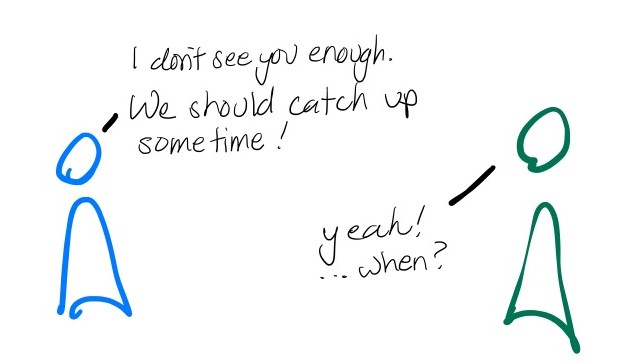 I don't see you enough.
We should catch up
sometime!
yeah!
...when?